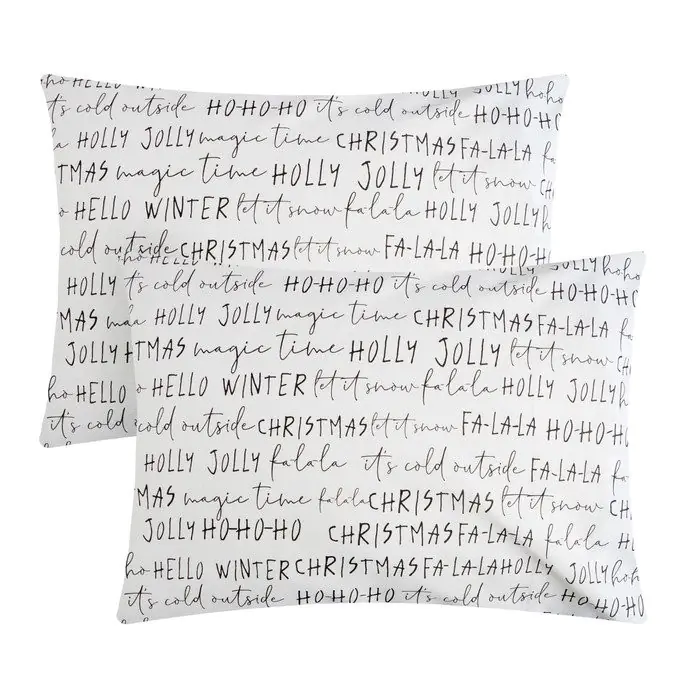 ho HELLO JOLLY hoho
it's cold outside HO-HO-HO it's cold outside HO-HO-H
HOLLY JOLLY magic time CHRISTMAS FA-LA-LA fa
TMAS magic time HOLLY JOLLY let it snow CH
o HELLO WINTER let it snow falala HOLLY JOLLY
cold outside CHRISTMAS let it snow FA-LA-LA HO-HO-H
HOLLY
MAS ma
JOLLY H
ho HELLO
it's cold
ho HELLO JOLLY hoho
it's cold outside HO-HO-HO it's cold outside HO-HO-H
la HOLLY JOLLY magic time CHRISTMAS FA-LA-LA fa
TMAS magic time HOLLY JOLLY let it snow CH
o HELLO WINTER let it snow falala HOLLY JOLLY h
cold outside CHRISTMAS let it snow FA-LA-LA HO-HO-HO
HOLLY JOLLY falala it's cold outside FA-LA-LA fa
MAS magic time falala CHRISTMAS let it snow CH
JOLLY HO-HO-HO CHRISTMAS FA-LA-LA falala H
ho HELLO WINTER CHRISTMAS FA-LA-LA HOLLY JOLLY hoh
it's cold outside HO-HO-HO it's cold outside HO-HO-HO